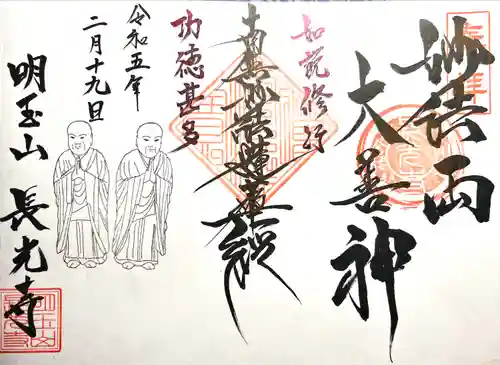 奉拝
妙法両
大善神
如説修行
南無妙法蓮華経
功徳甚多
令和五年
二月十九日
明玉山 長光寺